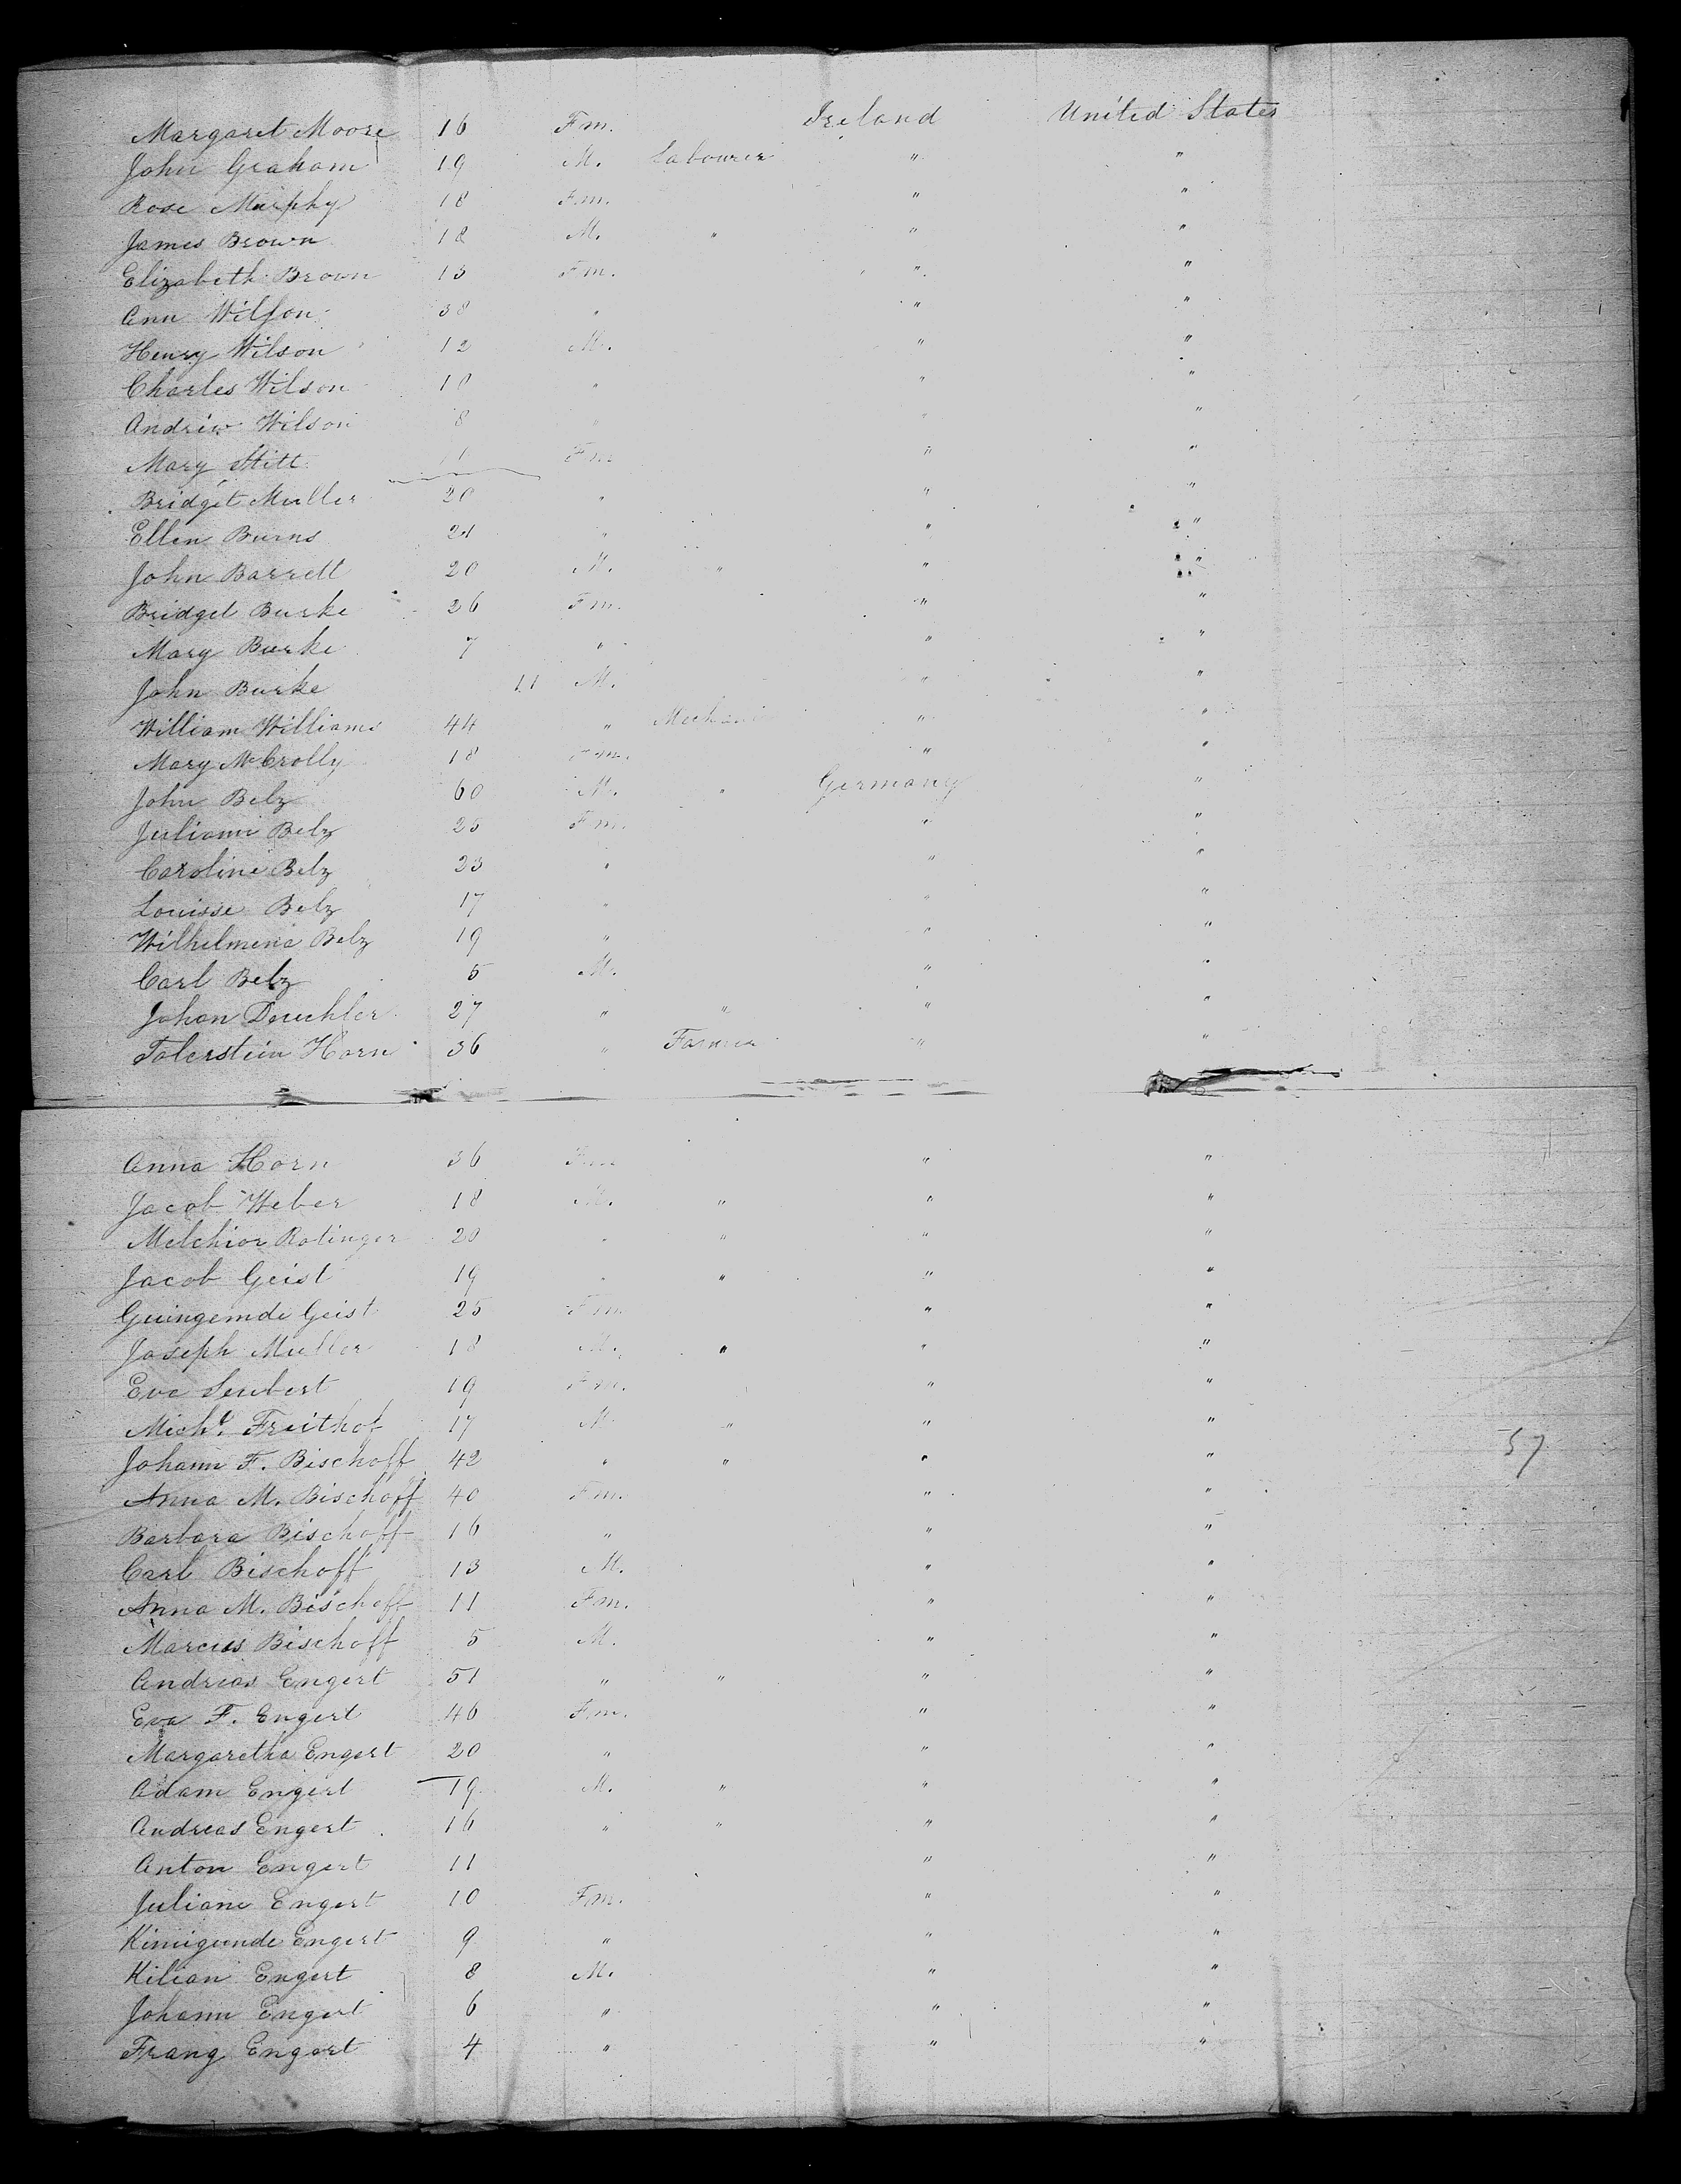 Margaret Moore 16 Fm. Ireland United States
John Graham 19 M. Labourer " "
Rose Murphy 18 Fm. " "
James Brown 18 M. " " "
Elizabeth Brown 13 Fm. " "
Ann Wilson 38 " " "
Henry Wilson 12 M. " "
Charles Wilson 10 " " "
Andrew Wilson 8 " " "
Mary Stitt Fm " "
Bridget Muller 20 " " "
Ellen Burns 21 " " "
John Barrett 20 M. " " "
Bridget Burke 26 Fm. " "
Mary Burke 7 " " "
John Burke 11 M. " "
William Williams 44 " Mechanic " "
Mary McCrolly 18 Fm. " "
John Belz 60 M. " Germany "
Juliann Belz 25 Fm. " "
Caroline Belz 23 " " "
Louisse Belz 17 " " "
Wilhelmena Belz 19 " " "
Carl Belz 5 M. " "
Johan Deuchler 27 " " " "
Tolerstein Horn 36 " Farmer " "
Anna Horn 36 Fm " "
Jacob Weber 18 M. " " "
Melchior Rotinger 20 " " " "
Jacob Geist 19 " " " "
Guingemde Geist 25 Fm " "
Joseph Muller 18 M. " " "
Eva Seubert 19 Fm. " "
Michl. Freithof 17 M. " " "
Johann F. Bischoff 42 " " " " 57
Anna M. Bischoff 40 Fm. " "
Barbara Bischoff 16 " " "
Carl Bischoff 13 M. " "
Anna M. Bischoff 11 Fm. " "
Marcus Bischoff 5 M. " "
Andreas Engert 51 " " " "
Eva F. Engert 46 Fm. " "
Margaretha Engert 20 " " "
Adam Engert 19 M. " " "
Andreas Engert 16 " " " "
Anton Engert 11 " "
Juliane Engert 10 Fm. " "
Kinigunde Engert 9 " " "
Kilian Engert 8 M. " "
Johann Engert 6 " " "
Franz Engert 4 " " "